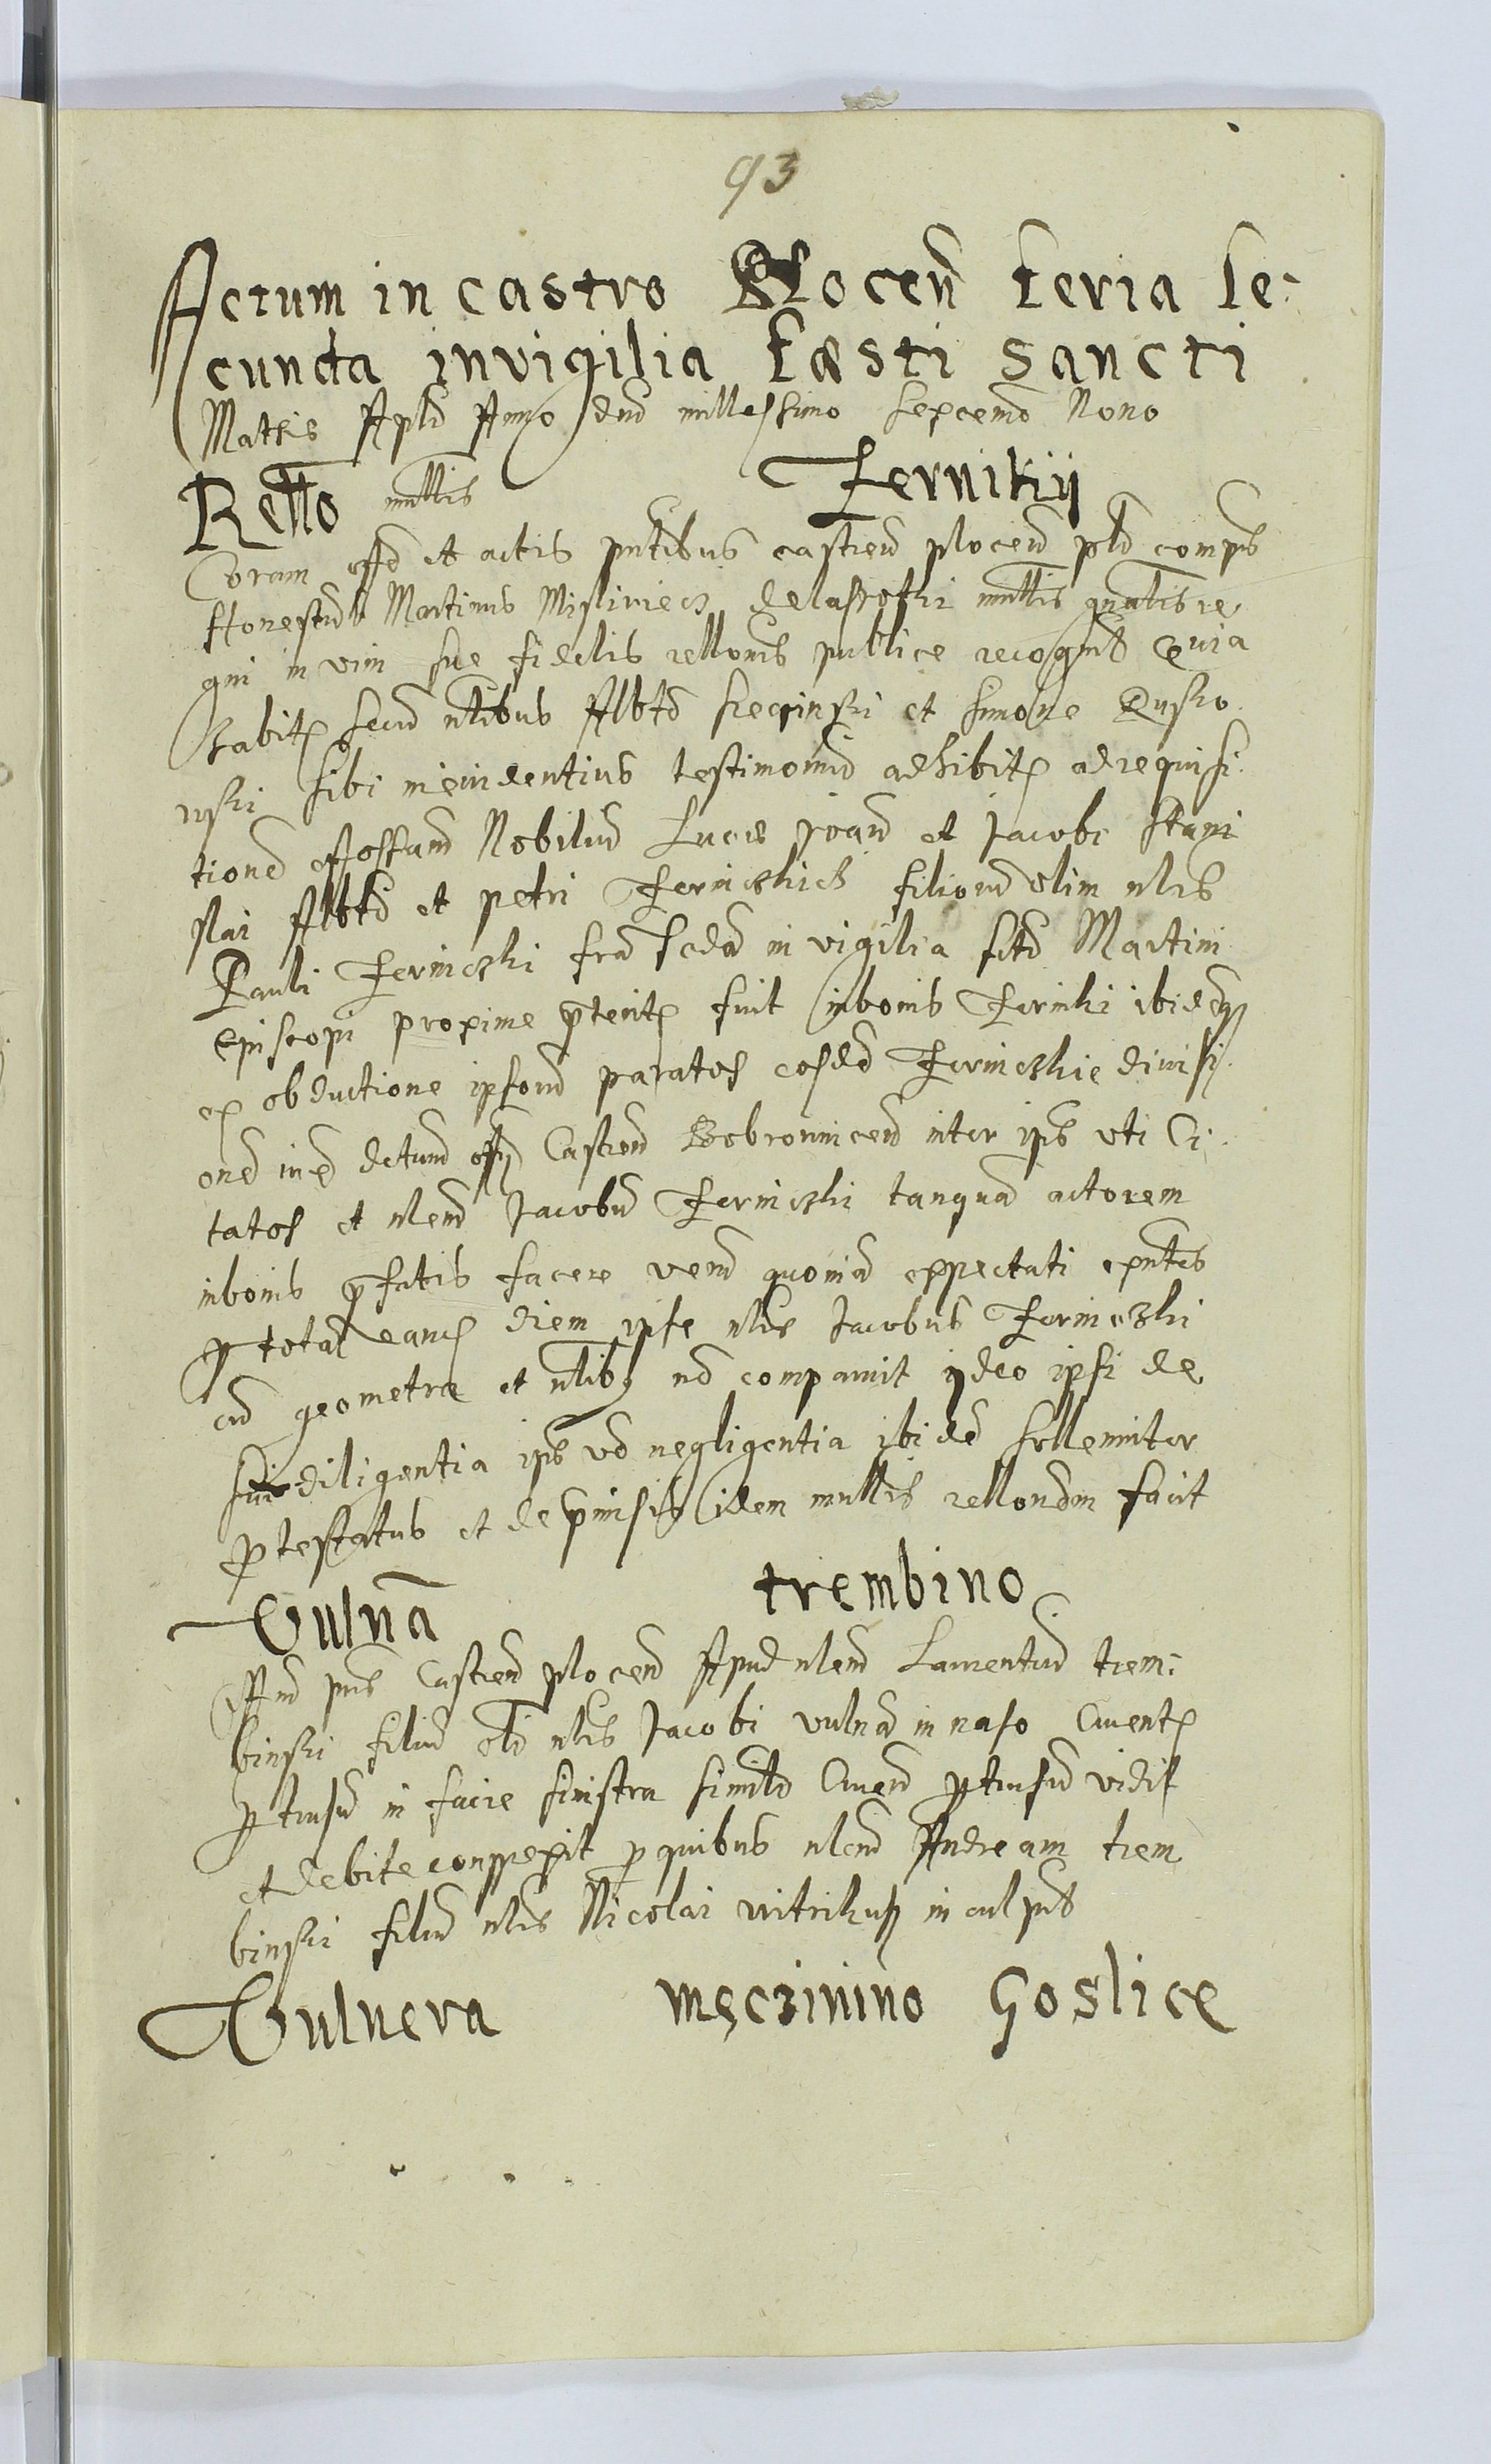 93
Actum in castro Plocen̄ feria se-
cunda in vigilia Fæsti Sancti
Mathie Apli Anno dni millessimo sexcemo Nono
Rello mllis Fernikij
Coram offo et actis pntibus castren plocen plr compns
Honestus Martinus Misliviecz mllis gnalis re
gni in vim sue fidelis rellonis publice recogns Quia
habitis secum nlibus Alberto et Simone
sibi in evidentius testimonium adhibitis ad requisi
tionem Nobilium Luce Joan et Jacobi Stani
slai Alberti et petri Fernickich filiorum olim nlis
Pauli Ferniczki fra scda in vigilia scti Martini
episcopi proxime pterit fuit in bonis Ferniki ibidemq
ex obductione ipsorum paratos eosdem Fernickie divisi
onem iuxta dctum offy Castren Bobrownicen inter ipsos uti Ci-
tatos et nlem Jacobum Ferniczki tanquam actorem
in bonis pfatis facere verum quoniam expectati expntes
p totam eam diem ipse nlis Jacobus Ferniczki
cum geometra et nlibq non comparuit ideo ipsi de
sui diligentia ipsius vero negligentia ibidem sollemniter
ptestatus et de pmissis idem mllis rellonem facit
Vulnā trembino
Offm pns Castren plocen Apud nlem Laurentium trem-
binski filium olim nlis Jacobi vulna in naso Cruent
ptusum in facie sinistra similr Cruen ptusum vidit
et debite conspexit p quibus nlem Andream trem
binski filium nlis Nicolai inculpns
Vulnera Męczinino Goslice